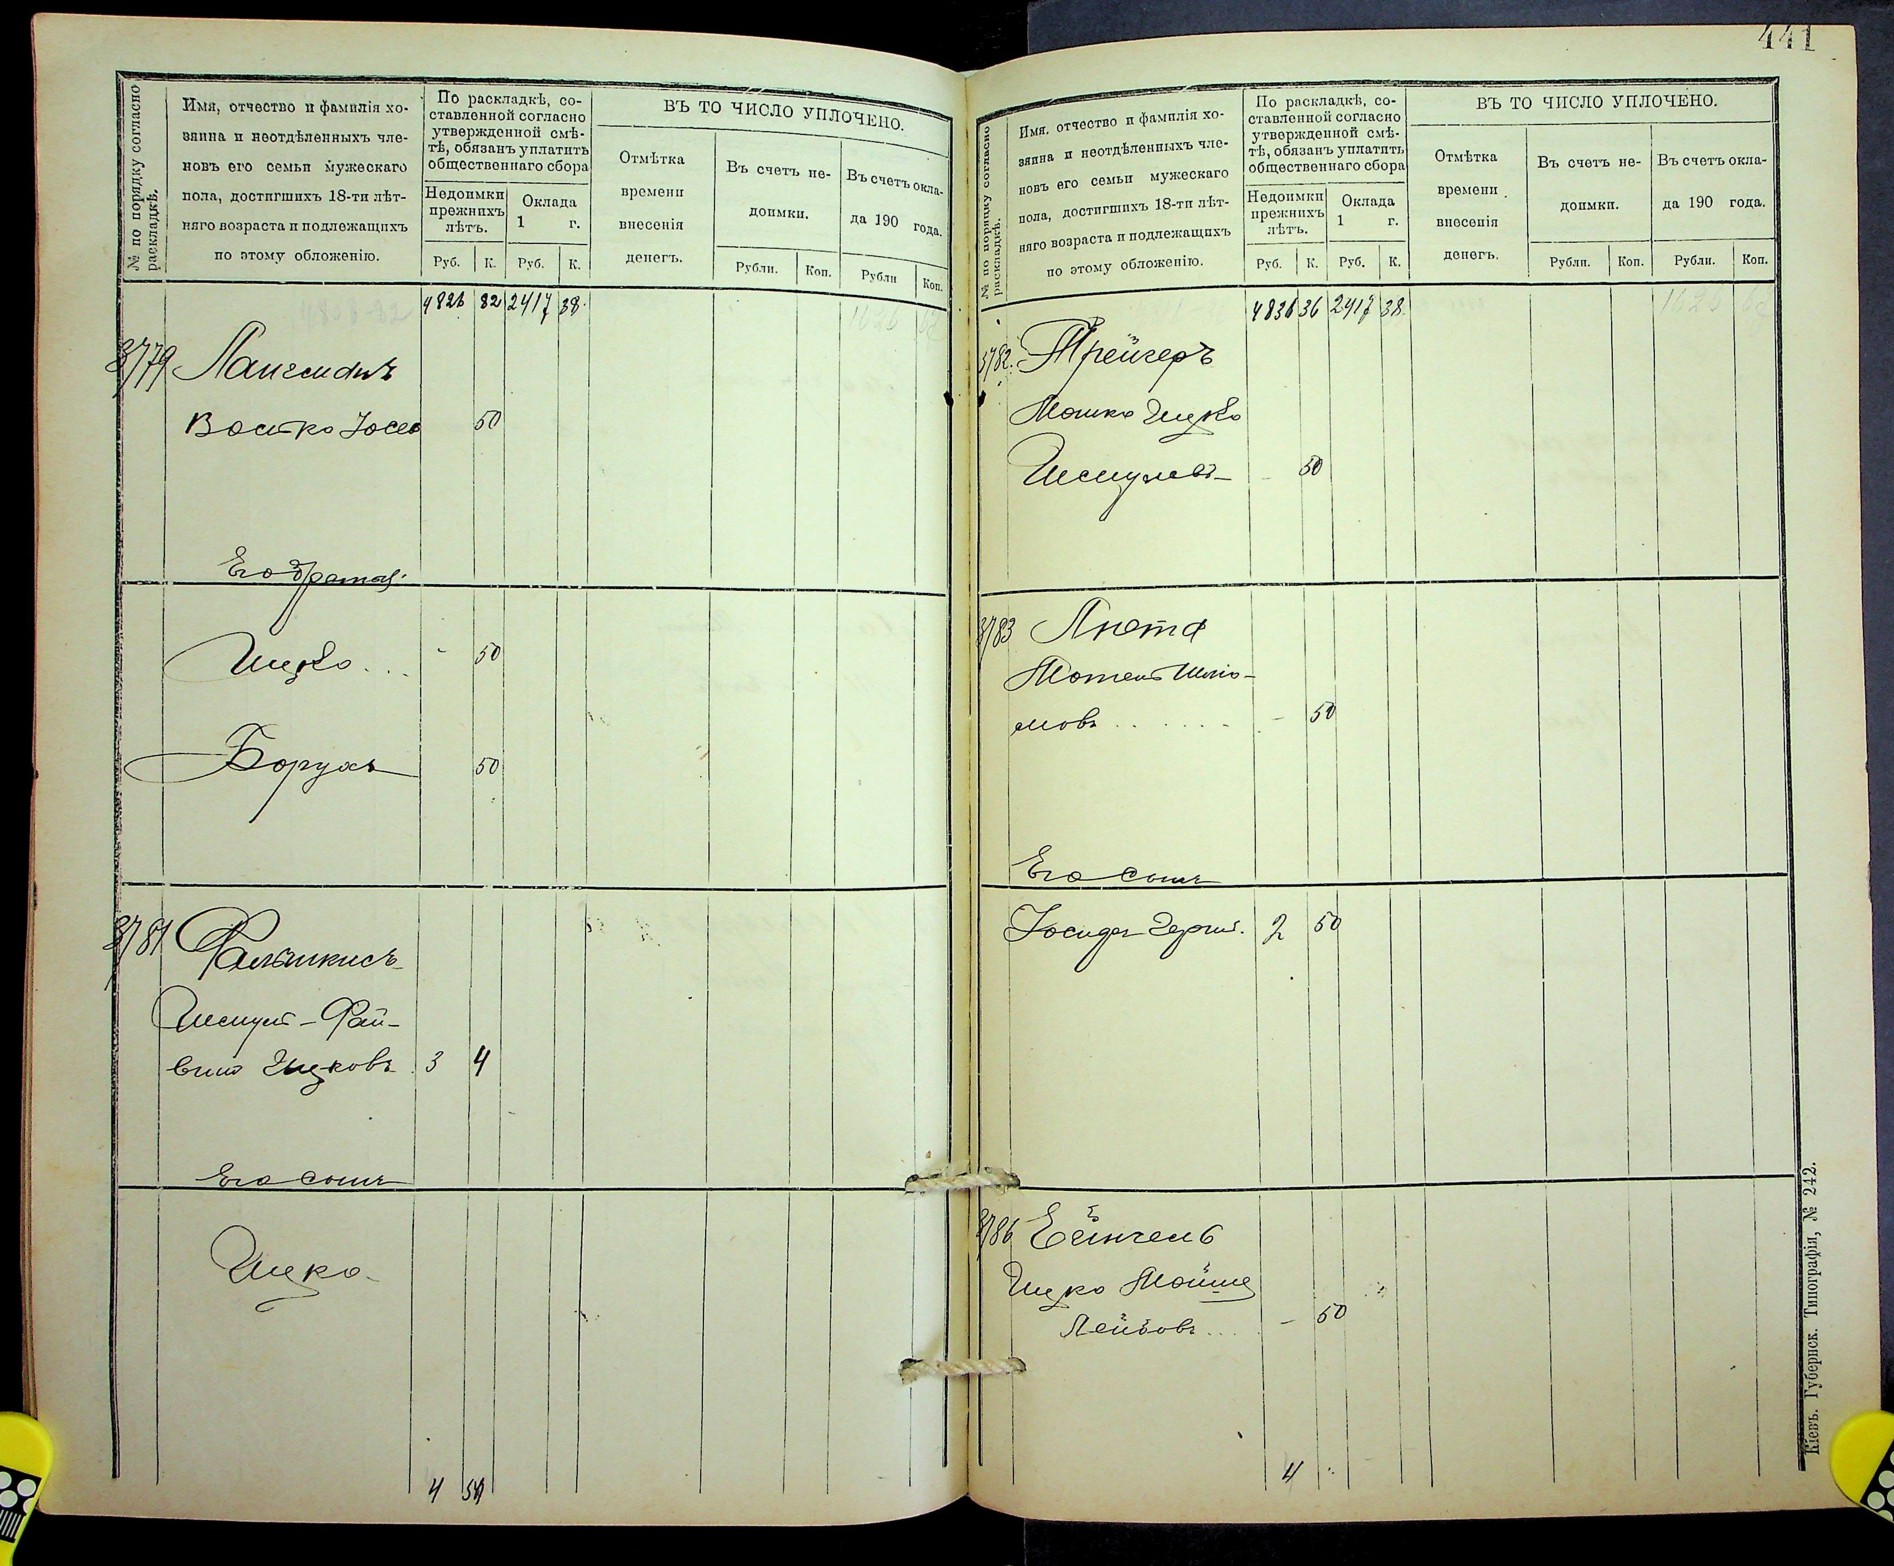 441
№ по порядку согласно
раскладкѣ.
Имя, отчество и фамилія хо-
зяина и неотдѣленныхъ чле-
новъ его семьи мужескаго
пола, достигшихъ 18-ти лѣт-
няго возраста и подлежащихъ
по этому обложенію.
По раскладкѣ, со-
ставленной согласно
утвержденной смѣ-
тѣ, обязанъ уплатить
общественнаго сбора
Недоимки
прежнихъ
лѣтъ.
Оклада
1 г.
Руб. К. Руб. К.
ВЪ ТО ЧИСЛО УПЛОЧЕНО.
Отмѣтка
времени
внесенія
денегъ.
Въ счетъ не-
доимки.
Рубли. Коп.
Въ счетъ окла-
да 190 года.
Рубли Коп.
4826 82 2417 38
3779
Иосько 50
Его братья:
Ицко 50
Борухъ 50
3781
Ицковъ 3 4
Его сынъ
Ицко
4 54
№ по порядку согласно
раскладкѣ.
Имя, отчество и фамилія хо-
зяина и неотдѣленныхъ чле-
новъ его семьи мужескаго
пола, достигшихъ 18-ти лѣт-
няго возраста и подлежащихъ
по этому обложенію.
По раскладкѣ, со-
ставленной согласно
утвержденной смѣ-
тѣ, обязанъ уплатить
общественнаго сбора
Недоимки
прежнихъ
лѣтъ.
Оклада
1 г.
Руб. К. Руб. К.
ВЪ ТО ЧИСЛО УПЛОЧЕНО.
Отмѣтка
времени
внесенія
денегъ.
Въ счетъ не-
доимки.
Рубли. Коп.
Въ счетъ окла-
да 190 года.
Рубли. Коп.
4836 36 2417 38
3782. Трейгеръ
Мошко Ицко
Шмулевъ - 50
3783 Люта
Мотель Шоло-
мовъ - 50
Его сынъ
2 50
3786
Ицко Мойше
Лейбовъ - 50
4
Кіевъ. Губернск. Типографія, № 242.